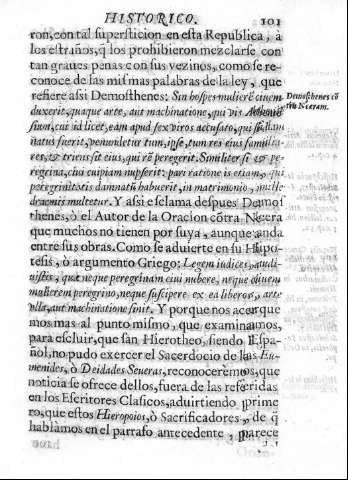 HISTORICO. 101
ron, con tal supersticion en esta Republica, à
los estraños, q̃ los prohibieron mezclarse con
tan graues penas con sus vezinos, como se re-
conoce de las mismas palabras de la ley, que
refiere assi Demosthenes: Sin hospes mulierẽ ciuem
duxerit, quaque arte, aut machinatione, qui vis Athenien
sium, cui id licet, eam apud sex viros accusato, qui si
natus fuerit, venundetur tum, ipse, tum res eius familia-
res, & triens sit eius, qui rẽ peregerit. Similiter si & pe-
regrina, cui cuipiam nupserit: pari ratione is etiam, qui
peregrinitatis damnatũ habuerit, in matrimonio, mille
dracmis mulctetur. Y assi esclama despues Demos
thenes, ò el Autor de la Oracion cõtra Neera
que muchos no tienen por suya, aunque anda
entre sus obras. Como se aduierte en su Hipo-
tesis, ò argumento Griego: Legem iudices, audi-
uistis, quæ neque peregrinam ciui nubere, neque ciuem
mulierem peregrino, neque suscipere ex ea liberos, arte
vlla, aut machinatione sinit. Y porque nos acerque
mos mas al punto mismo, que examinamos,
para escluir, que san Hierotheo, siendo Espa-
ñol, no pudo exercer el Sacerdocio de las Eu-
menides, ò Deidades Seueras, reconoceremos, que
noticia se ofrece dellos, fuera de las referidas
en los Escritores Clasicos, aduirtiendo prime
ro, que estos Hieropoios, ò Sacrificadores, de q̃
hablamos en el parrafo antecedente, parece
Demosthenes cõ
tra Neeram.